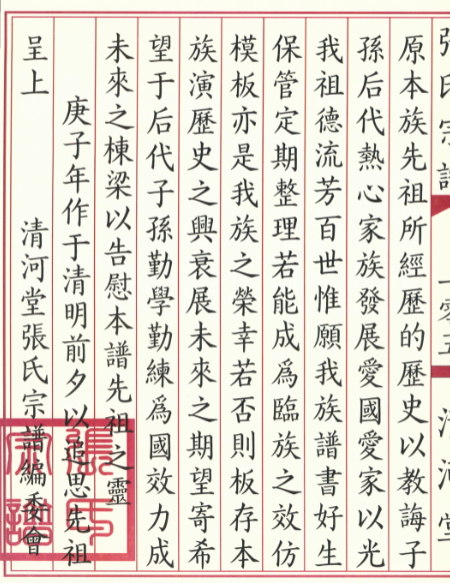 張氏宗譜 一零五 清河堂
原本族先祖所經歷的歷史以教誨子
孫后代熱心家族發展愛國愛家以光
我祖德流芳百世惟願我族譜書好生
保管定期整理若能成爲臨族之效仿
模板亦是我族之榮幸若否則板存本
族演歷史之興衰展未來之期望寄希
望于后代子孫勤學勤練爲國效力成
未來之棟梁以告慰本譜先祖之靈
庚子年作于清明前夕以追思先祖
呈上 清河堂張氏宗譜編委會
張氏宗譜